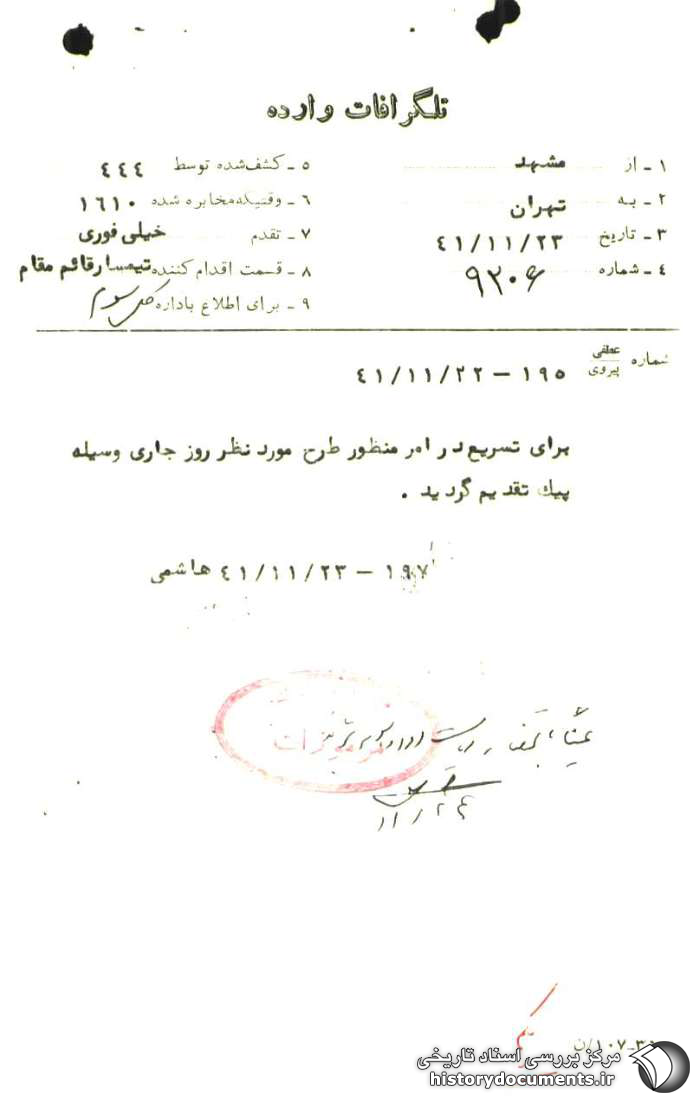 تلگرافات وارده
۱ ـ از مشهد
۲ ـ به تهران
۳ ـ تاریخ ۴۱/۱۱/۲۳
۴ ـ شماره ۹۲۰۶
۵ ـ کشف شده توسط ۴۴۴
۶ ـ وقتیکه مخابره شده ۱۶۱۰
۷ ـ تقدم خیلی فوری
۸ ـ قسمت اقدام کننده تیمسار قائم مقام
۹ ـ برای اطلاع باداره کل سوم
شماره عطفی پیروی ۱۹۵ – ۴۱/۱۱/۲۲
برای تسریع در امر منظور طرح مورد نظر روز جاری وسیله
پیك تقدیم گردید .
۱۹۷ – ۴۱/۱۱/۲۳ هاشمی
عیناً
۱۱/۲۴
مرکز بررسی اسناد تاریخی
historydocuments.ir